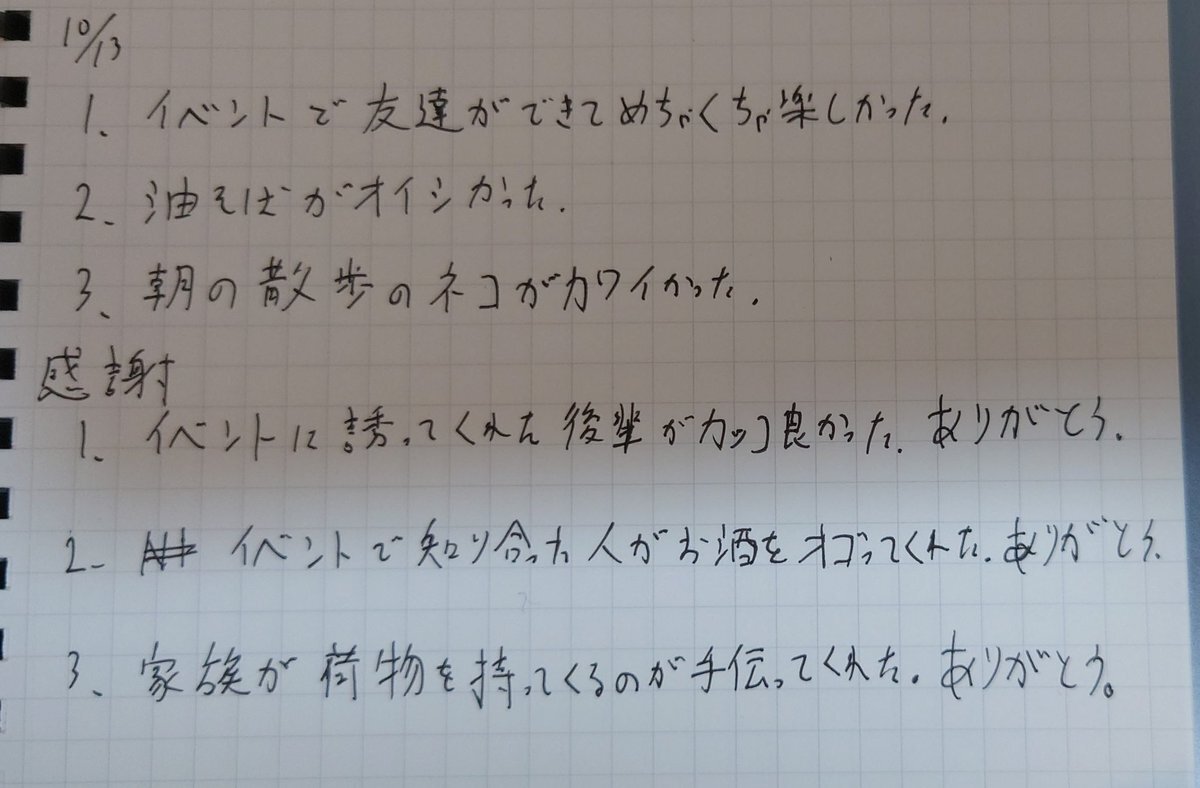 10/13
1. イベントで友達ができてめちゃくちゃ楽しかった.
2. 油そばがオイシかった.
3. 朝の散歩のネコがカワイかった.
感謝
1. イベントに誘ってくれた後輩がカッコ良かった. ありがとう.
2. イベントで知り合った人がお酒をオゴってくれた. ありがとう.
3. 家族が荷物を持ってくるのが手伝ってくれた. ありがとう。